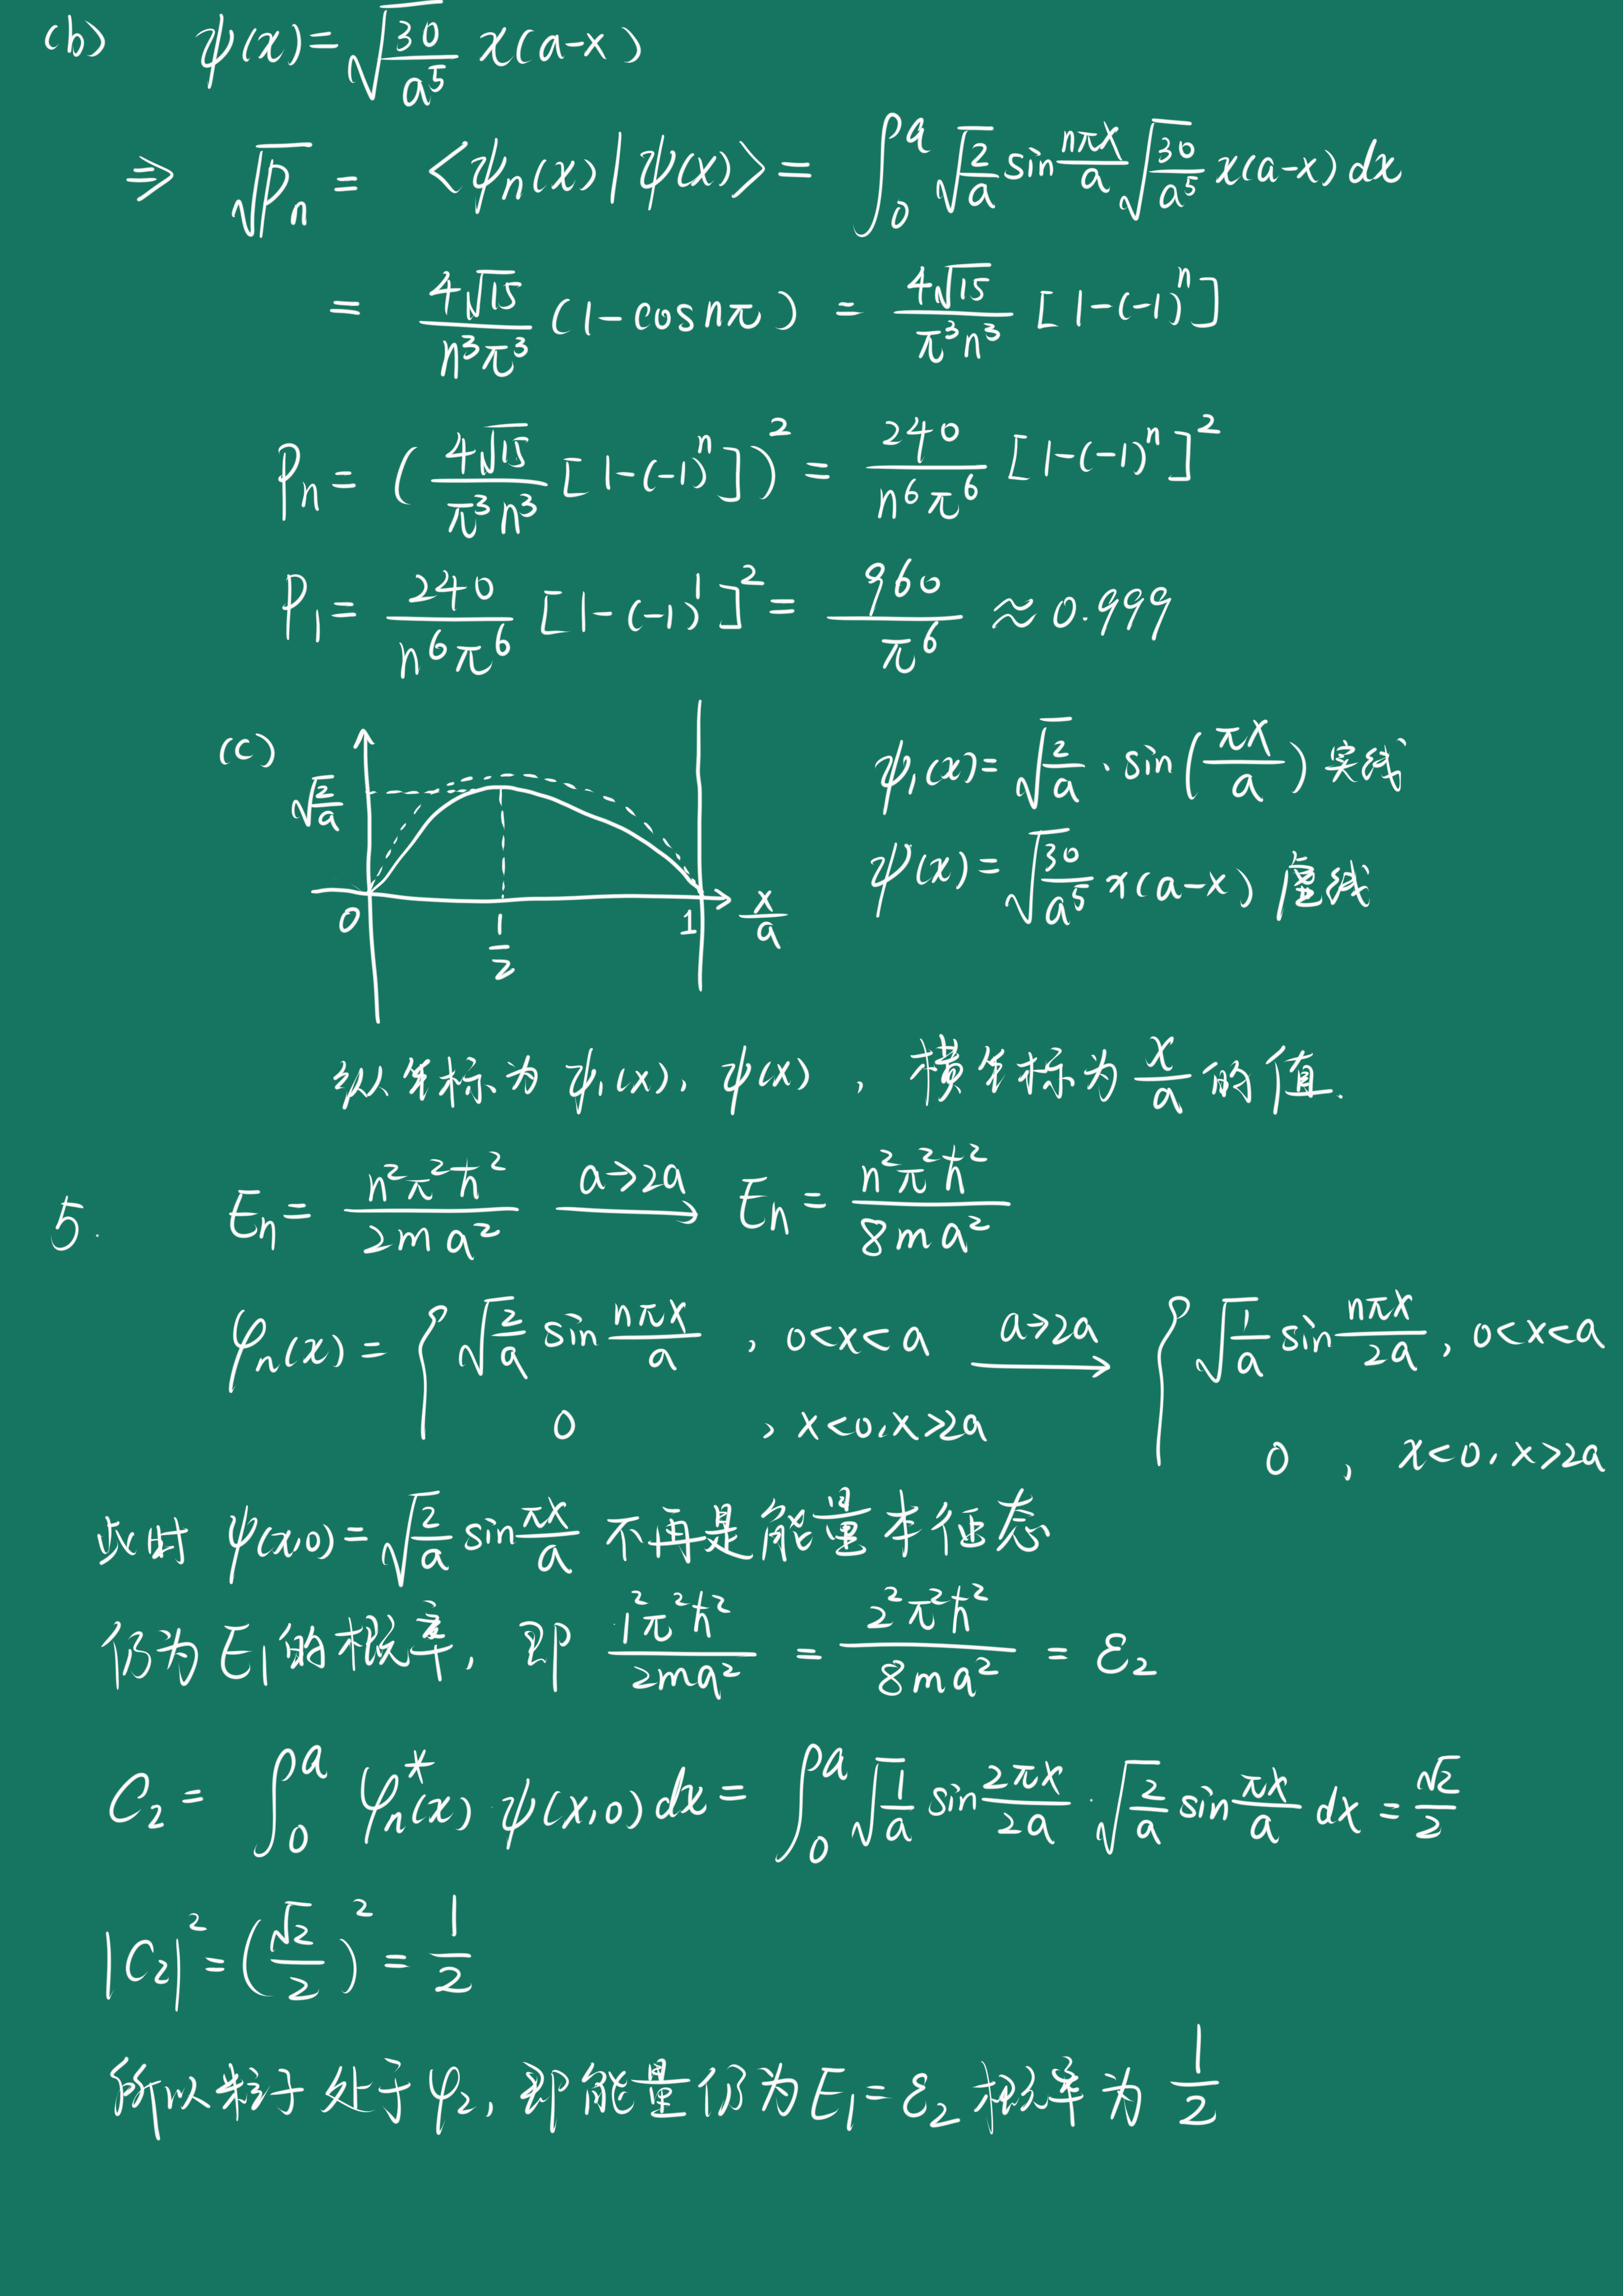 (b) ψ(x)=√(30/a⁵) x(a-x)
⇒ √Pₙ = <ψₙ(x)|ψ(x)> = ∫₀ᵃ √(2/a) sin(nπx/a) √(30/a⁵) x(a-x) dx
= 4√15/(n³π³) (1-cosnπ) = 4√15/(π³n³) [1-(-1)ⁿ]
Pₙ = (4√15/(π³n³) [1-(-1)ⁿ])² = 240/(n⁶π⁶) [1-(-1)ⁿ]²
P₁ = 240/(n⁶π⁶) [1-(-1)¹]² = 960/π⁶ ≈ 0.999
(c)
√(2/a)
0
1/2
1
x/a
ψ₁(x)=√(2/a)·sin(πx/a) 实线
ψ(x)=√(30/a⁵) x(a-x) 虚线
纵坐标为ψ₁(x),ψ(x),横坐标为 x/a 的值.
5. Eₙ = n²π²ħ²/(2ma²) —a→2a→ Eₙ = n²π²ħ²/(8ma²)
φₙ(x) = { √(2/a) sin(nπx/a), 0<x<a —a→2a→ { √(1/a) sin(nπx/2a), 0<x<a
0, x<0,x>2a
0, x<0,x>2a
此时 ψ(x,0)=√(2/a) sin(πx/a) 不再是能量本征态
仍为E₁的概率, 即 1²π²ħ²/(2ma²) = 2²π²ħ²/(8ma²) = ε₂
C₂ = ∫₀ᵃ φₙ*(x)·ψ(x,0)dx = ∫₀ᵃ √(1/a) sin(2πx/2a)·√(2/a) sin(πx/a) dx = √2/2
|C₂|² = (√2/2)² = 1/2
所以粒子处于φ₂, 即能量仍为E₁=ε₂ 概率为 1/2